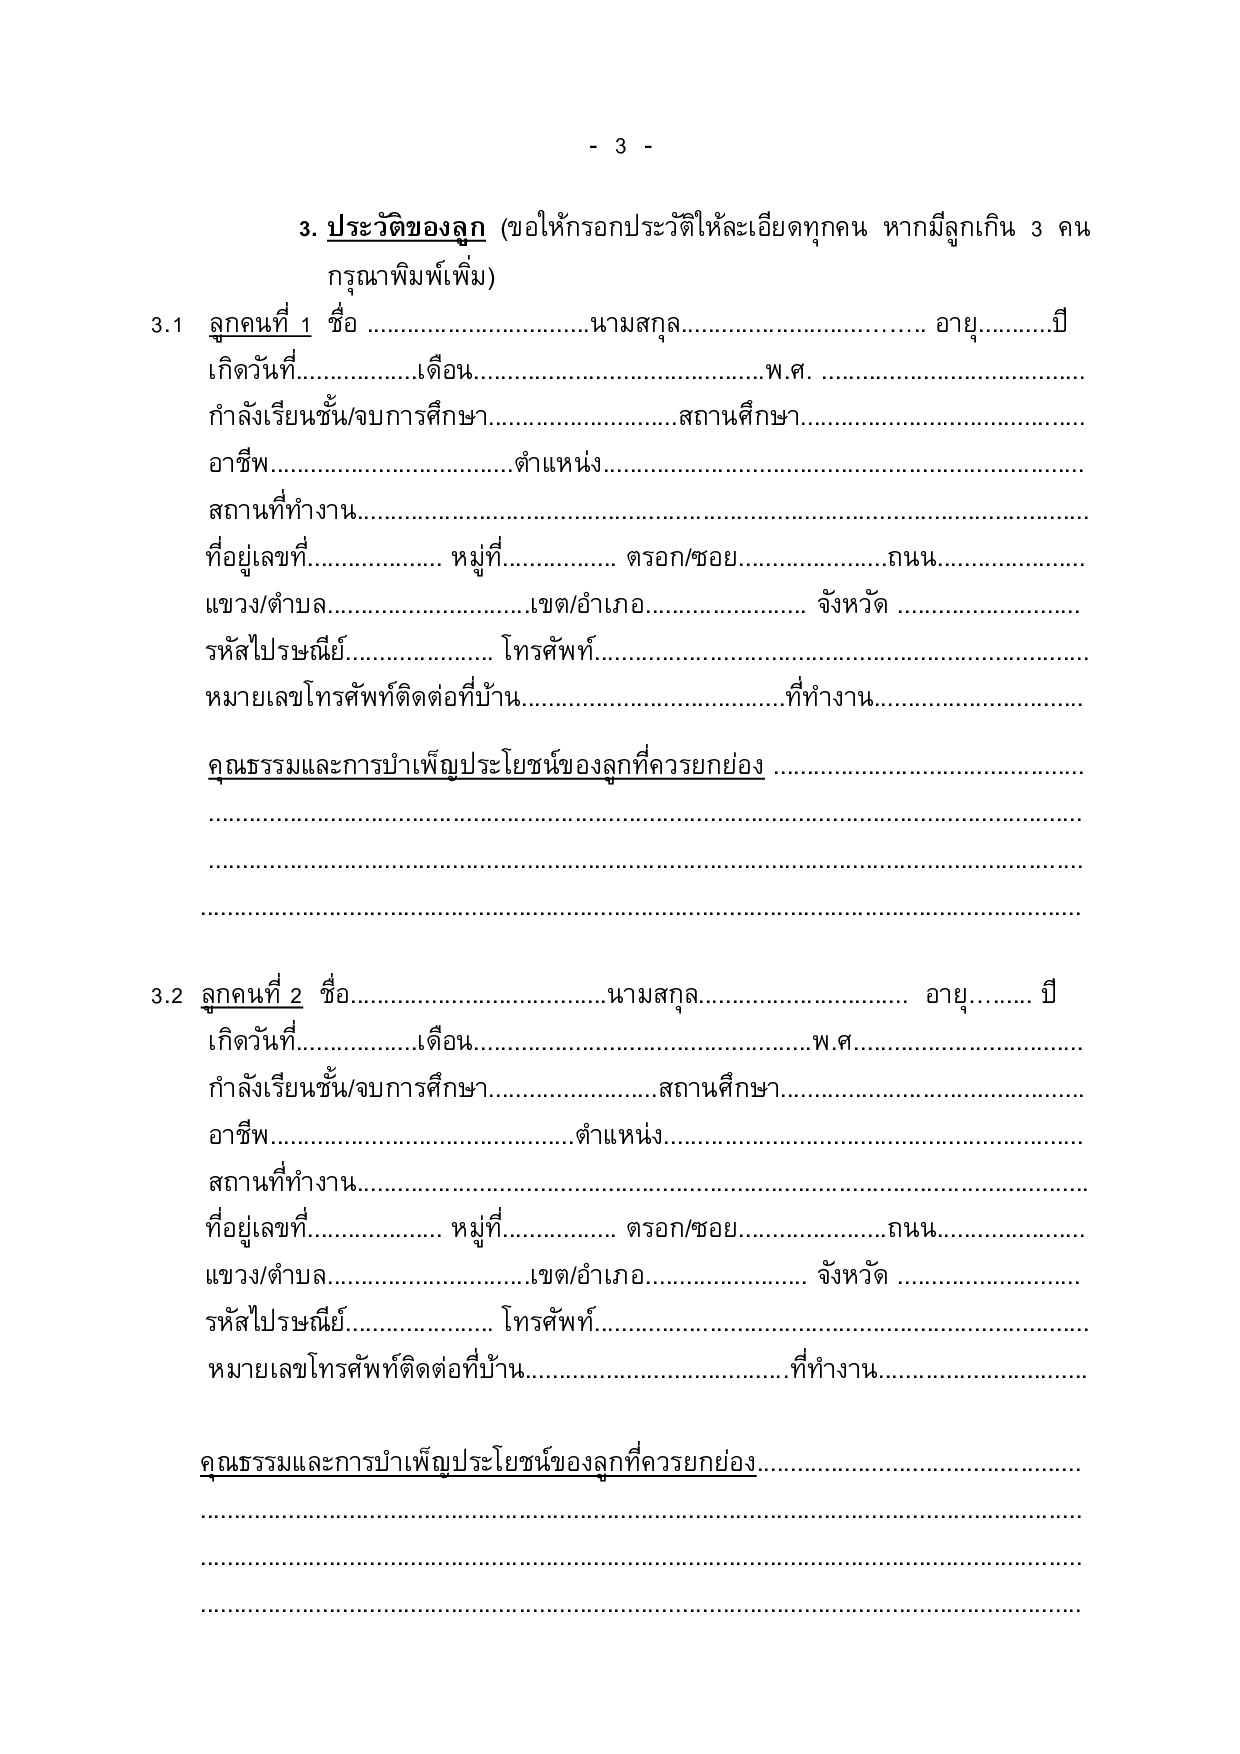 - 3 -
3. ประวัติของลูก (ขอให้กรอกประวัติให้ละเอียดทุกคน หากมีลูกเกิน 3 คน
กรุณาพิมพ์เพิ่ม)
3.1 ลูกคนที่ 1 ชื่อ .................................นามสกุล..................................... อายุ...........ปี
เกิดวันที่..................เดือน...........................................พ.ศ. .......................................
กำลังเรียนชั้น/จบการศึกษา............................สถานศึกษา..........................................
อาชีพ....................................ตำแหน่ง.......................................................................
สถานที่ทำงาน............................................................................................................
ที่อยู่เลขที่.................... หมู่ที่................. ตรอก/ซอย......................ถนน......................
แขวง/ตำบล..............................เขต/อำเภอ........................ จังหวัด ...........................
รหัสไปรษณีย์...................... โทรศัพท์.........................................................................
หมายเลขโทรศัพท์ติดต่อที่บ้าน.......................................ที่ทำงาน...............................
คุณธรรมและการบำเพ็ญประโยชน์ของลูกที่ควรยกย่อง ..............................................
.................................................................................................................................
.................................................................................................................................
..................................................................................................................................
3.2 ลูกคนที่ 2 ชื่อ......................................นามสกุล............................... อายุ......... ปี
เกิดวันที่..................เดือน..................................................พ.ศ..................................
กำลังเรียนชั้น/จบการศึกษา.........................สถานศึกษา.............................................
อาชีพ.............................................ตำแหน่ง..............................................................
สถานที่ทำงาน............................................................................................................
ที่อยู่เลขที่.................... หมู่ที่................. ตรอก/ซอย......................ถนน......................
แขวง/ตำบล..............................เขต/อำเภอ........................ จังหวัด ...........................
รหัสไปรษณีย์...................... โทรศัพท์.........................................................................
หมายเลขโทรศัพท์ติดต่อที่บ้าน.......................................ที่ทำงาน...............................
คุณธรรมและการบำเพ็ญประโยชน์ของลูกที่ควรยกย่อง................................................
..................................................................................................................................
..................................................................................................................................
..................................................................................................................................